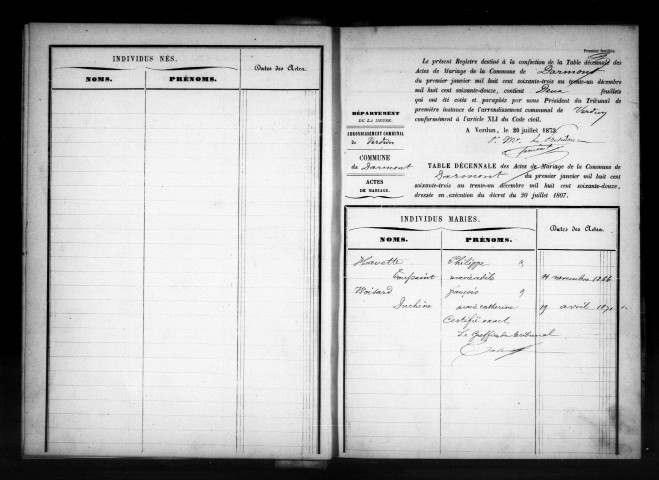 INDIVIDUS NÉS.
Dates des Actes.
NOMS.
PRÉNOMS.
Premier feuillet.
Le présent Registre destiné à la confection de la Table décennale des
Actes de Mariage de la Commune de Darmont
du premier janvier mil huit cent soixante-trois au trente-un décembre
mil huit cent soixante-douze, contient Deux feuillets
qui ont été cotés et paraphés par nous Président du Tribunal de
première instance de l'arrondissement communal de Verdun
conformément à l'article XLI du Code civil.
A Verdun, le 20 juillet 1873.
DÉPARTEMENT
DE LA MEUSE.
ARRONDISSEMENT COMMUNAL
de Verdun
COMMUNE
de Darmont
ACTES
DE MARIAGE.
TABLE DÉCENNALE des Actes de Mariage de la Commune de
Darmont du premier janvier mil huit cent
soixante-trois au trente-un décembre mil huit cent soixante-douze,
dressée en exécution du décret du 20 juillet 1807.
INDIVIDUS MARIÉS.
Dates des Actes.
NOMS.
PRÉNOMS.
Havette Philippe &
Toussaint marie novembre
François &
Duchêne catherine 19 avril
Certifié exact
Le Greffier du Tribunal